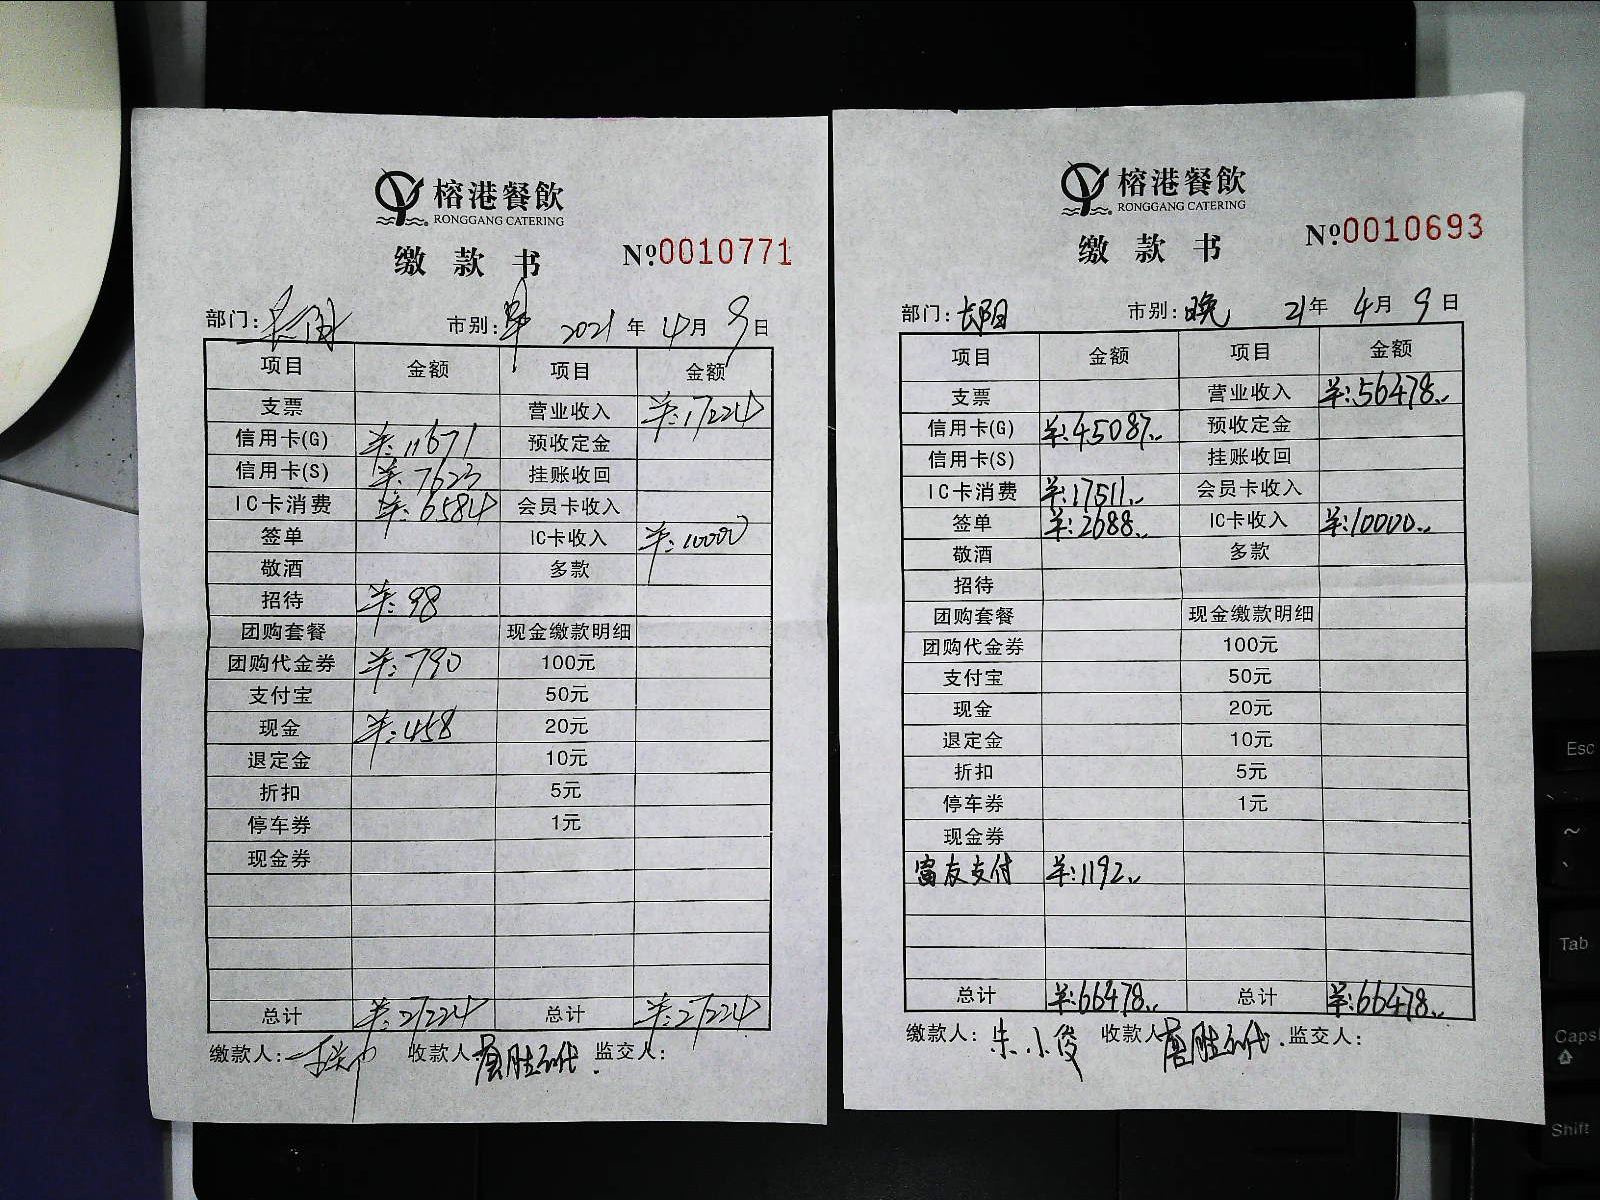 榕港餐飲
RONGGANG CATERING
缴款书 №0010771
部门: 市别:早 2021年4月9日
项目 金额 项目 金额
支票 营业收入 羊:17224
信用卡(G) 羊:11671 预收定金
信用卡(S) 羊:7623 挂账收回
IC卡消费 羊:6584 会员卡收入
签单 IC卡收入 羊:10000
敬酒 多款
招待 羊:98
团购套餐 现金缴款明细
团购代金券 羊:790 100元
支付宝 50元
现金 羊:458 20元
退定金 10元
折扣 5元
停车券 1元
现金券
总计 羊:27224 总计 羊:27224
缴款人: 收款人 监交人:
榕港餐飲
RONGGANG CATERING
缴款书 №0010693
部门:长阳 市别:晚 21年4月9日
项目 金额 项目 金额
支票 营业收入 羊:56478..
信用卡(G) 羊:45087.. 预收定金
信用卡(S) 挂账收回
IC卡消费 羊:17511.. 会员卡收入
签单 羊:2688.. IC卡收入 羊:10000..
敬酒 多款
招待
团购套餐 现金缴款明细
团购代金券 100元
支付宝 50元
现金 20元
退定金 10元
折扣 5元
停车券 1元
现金券
富友支付 羊:1192..
总计 羊:66478.. 总计 羊:66478..
缴款人:朱小俊 收款人 监交人:
Esc
~
Tab
Caps
Shift